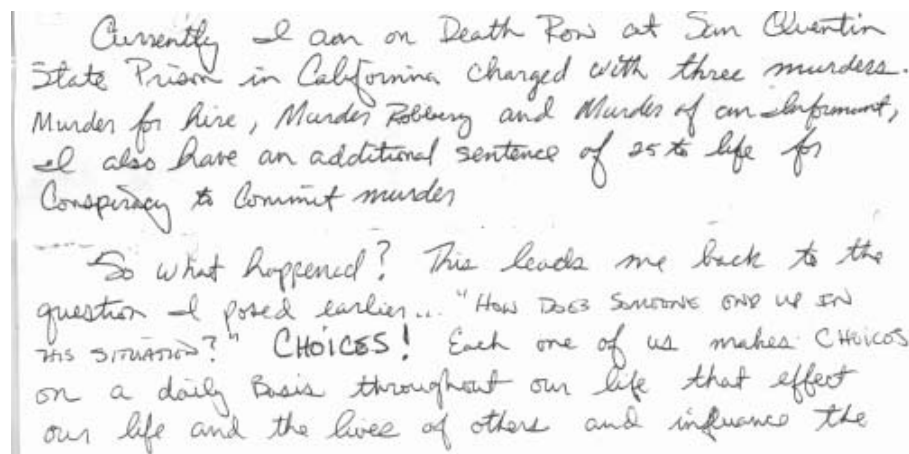 Currently I am on Death Row at San Quentin
State Prison in Califorinia charged with three murders.
Murder for hire, Murder Robbery and Murder of an Informant,
I also have an additional sentence of 25 to life for
Conspiracy to Commit murder
So what happened? This leads me back to the
question I posed earlier... "HOW DOES SOMEONE END UP IN
THIS SITUATION?" CHOICES! Each one of us makes CHOICES
on a daily Basis throughout our life that effect
our life and the lives of others and influance the